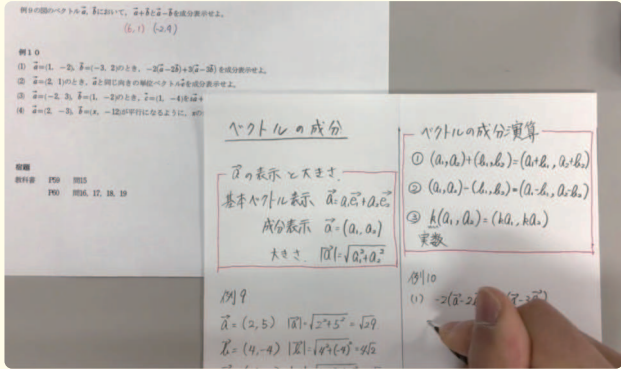 例９の図のベクトルa, bにおいて, a+bとa−bを成分表示せよ。
(6, 1) (-2, 9)
例１０
(1) a=(1, −2), b=(−3, 2)のとき,
を成分表示せよ。
(2) a=(2, 1)のとき, aと同じ向きの単位ベクトル
を成分表示せよ。
(3) a=(−2, 3), b=(1, −2)のとき, c=(1, −4)を
(4) a=(2, −3), b=(x, −12)が平行になるように,
宿題
教科書 P59 問15
P60 問16, 17, 18, 19
ベクトルの成分
aの表示と大きさ
基本ベクトル表示 a=a₁e₁+a₂e₂
成分表示 a=(a₁, a₂)
大きさ |a|=√a₁²+a₂²
例9
a=(2, 5) |a|=√2²+5²=√29
b=(4, -4) |b|=√4²+(-4)²=4√2
ベクトルの成分演算
① (a₁, a₂)+(b₁, b₂)=(a₁+b₁, a₂+b₂)
② (a₁, a₂)-(b₁, b₂)=(a₁-b₁, a₂-b₂)
③ k(a₁, a₂)=(ka₁, ka₂)
実数
例10
(1) -2(a-2